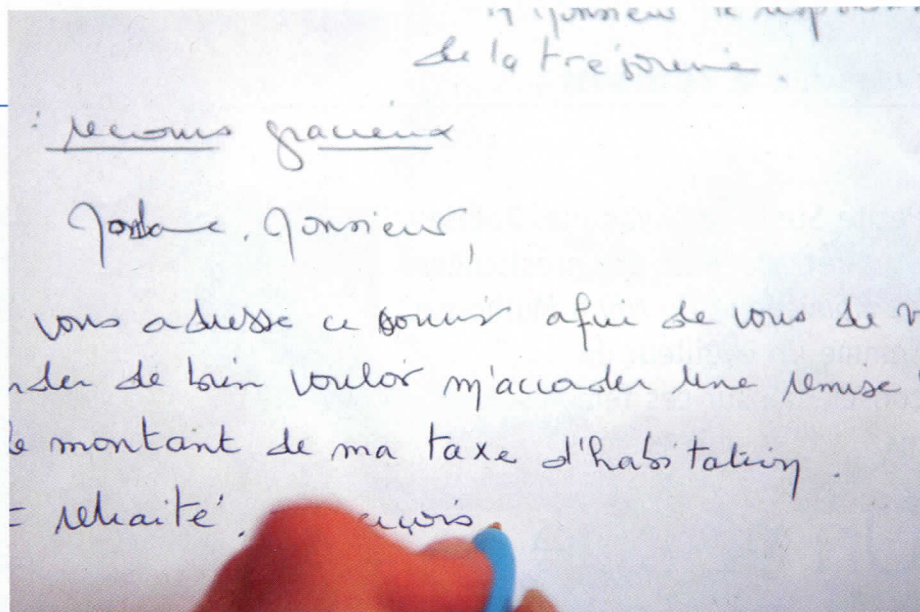 à Monsieur le
de la trésorerie.
: recours gracieux
Madame, Monsieur,
vous adresse ce courrier afin de vous de
nder de bien vouloir m'accorder une remise
e montant de ma taxe d'habitation.
retraité.